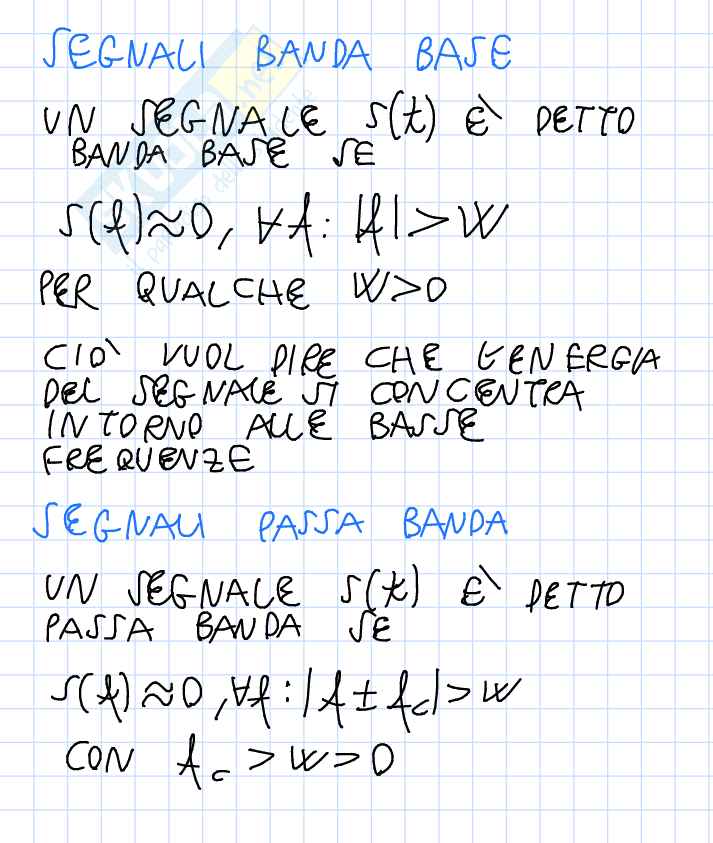 SEGNALI BANDA BASE
UN SEGNALE s(t) È DETTO
BANDA BASE SE
S(f)≈0, ∀f: |f|>W
PER QUALCHE W>0
CIÒ VUOL DIRE CHE L'ENERGIA
DEL SEGNALE SI CONCENTRA
INTORNO ALLE BASSE
FREQUENZE
SEGNALI PASSA BANDA
UN SEGNALE s(t) È DETTO
PASSA BANDA SE
S(f)≈0, ∀f: |f±f_c|>W
CON f_c>W>0